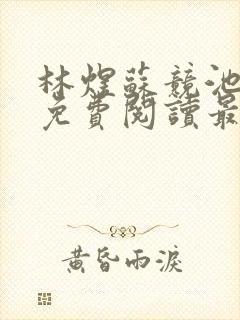 林煋蘇競池
免費閱讀最
黃昏雨淚